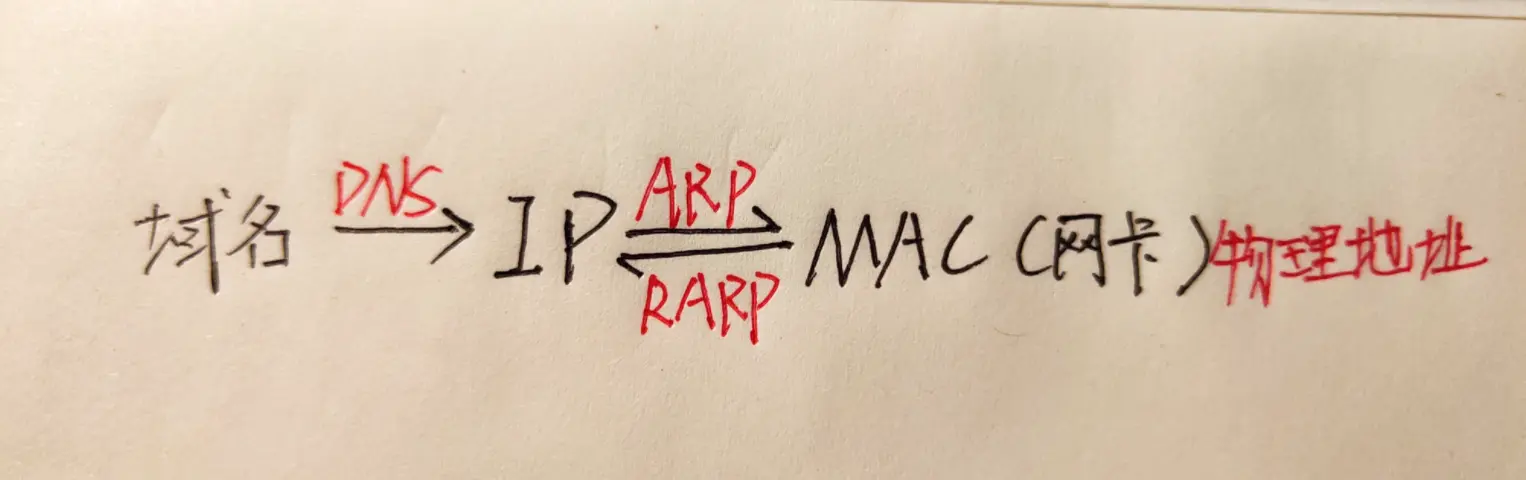 域名 DNS IP ARP RARP MAC (网卡) 物理地址